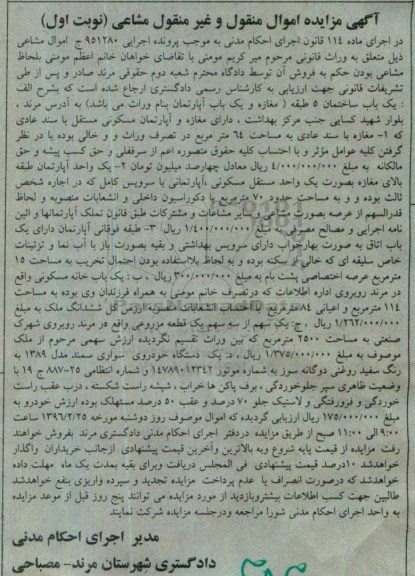 آگهی مزایده اموال منقول و غیر منقول مشاعی (نوبت اول)
در اجرای ماده ۱۱۴ قانون اجرای احکام مدنی به موجب پرونده اجرایی ۹۵۱۲۸۰ ج اموال مشاعی
ذیل متعلق به وراث قانونی مرحوم میر کریم مومنی با تقاضای خواهان خانم اعظم مومنی بلحاظ
مشاعی بودن حکم به فروش آن توسط دادگاه محترم شعبه دوم حقوقی مرند صادر و پس از طی
تشریفات قانونی جهت ارزیابی به کارشناس رسمی دادگستری ارجاع شده است که بشرح الف
: یک باب ساختمان ۵ طبقه ( مغازه و یک باب آپارتمان بنام وراث می باشد) به آدرس مرند ،
بلوار شهید کسایی جنب مرکز بهداشت ، دارای مغازه و آپارتمان مسکونی مستقل با سند عادی
که ۱- مغازه با سند عادی به مساحت ۶۴ متر مربع در تصرف وراث و خالی بوده با در نظر
گرفتن کلیه عوامل مؤثر و با احتساب کلیه حقوق متصوره اعم از سرقفلی و حق کسب پیشه و حق
مالکانه به مبلغ ۴/۰۰۰/۰۰۰/۰۰۰ ریال معادل چهارصد میلیون تومان ۲- یک واحد آپارتمان طبقه
بالای مغازه بصورت یک واحد مستقل مسکونی ،آپارتمانی با سرویس کامل که در اجاره شخص
ثالث بوده و به مساحت حدود ۷۰ مترمربع با دکوراسیون داخلی و انشعابات منصوبه و لحاظ
قدرالسهم از عرصه بصورت مشاعی و سایر مشاعات و مشترکات طبق قانون تملک آپارتمانها و ائین
نامه اجرایی و مصالح مصرفی به مبلغ ۱/۴۰۰/۰۰۰/۰۰۰ ریال، ۳- طبقه فوقانی آپارتمان دارای یک
باب اتاق به صورت بهارخواب دارای سرویس بهداشتی و بقیه بصورت باز با آب نما و تزئینات
خاص سلیقه ای که خالی از سکنه بوده و به لحاظ بلااستفاده بودن احتمال تخریب به مساحت ۱۵
مترمربع عرصه اختصاصی پشت بام به مبلغ ۳۰۰/۰۰۰/۰۰۰ ریال ، ب : یک باب خانه مسکونی واقع
در مرند روبروی اداره اطلاعات که در تصرف خانم مومنی به همراه فرزندان وی بوده به مساحت
۱۱۴ مترمربع و اعیانی ۸۴ مترمربع با احتساب انشعابات منصوبه ارزش کل ششدانگ ملک به مبلغ
۱/۲۶۲/۰۰۰/۰۰۰ ریال ، ج: یک سهم از سه سهم یک قطعه مزروعی واقع در مرند روبروی شهرک
صنعتی به مساحت ۲۵۰۰ مترمربع که بین وراث تقسیم نگردیده ارزش سهمی مرحوم از ملک
موصوف به مبلغ ۱/۳۷۵/۰۰۰/۰۰۰ ریال ، د: یک دستگاه خودروی سواری سمند مدل ۱۳۸۹ به
رنگ سفید روغنی دوگانه سوز به شماره موتور ۱۴۷۸۹۰۱۲۳۴۲ و شماره انتظامی ۲۵-۸۸۷ ج ۱۹ با
وضعیت ظاهری سپر جلوخوردگی ، برف پاکن ها خراب ، شیشه راست شکسته ، درب عقب راست
خوردگی و فرورفتگی و لاستیک جلو ۷۰ درصد و عقب ۵۰ درصد مستهلک بوده ارزش خودرو به
مبلغ ۱۷۵/۰۰۰/۰۰۰ ریال ارزیابی گردیده که اموال موصوف روز دوشنبه مورخه ۱۳۹۶/۲/۲۵ ساعت
۹:۰۰ الی ۱۱:۰۰ صبح از طریق مزایده دردفتر اجرای احکام مدنی دادگستری مرند بفروش خواهد
رفت مزایده از قیمت پایه شروع وبه بالاترین وآخرین قیمت پیشنهادی ازجانب خریداران واگذار
خواهدشد ۱۰درصد قیمت پیشنهادی فی المجلس دریافت وبرای بقیه بمدت یک ماه مهلت داده
خواهدشد که درصورت انصراف یا عدم پرداخت مزایده تجدید و سپرده واریزی بنفع خواهدشد
طالبین جهت کسب اطلاعات بیشتروبازدید از مورد مزایده می توانند پنج روز قبل از موعد مزایده
به واحد اجرای احکام مدنی شورا مراجعه ودرجلسه مزایده شرکت نمایند
مدیر اجرای احکام مدنی
دادگستری شهرستان مرند- مصباحی